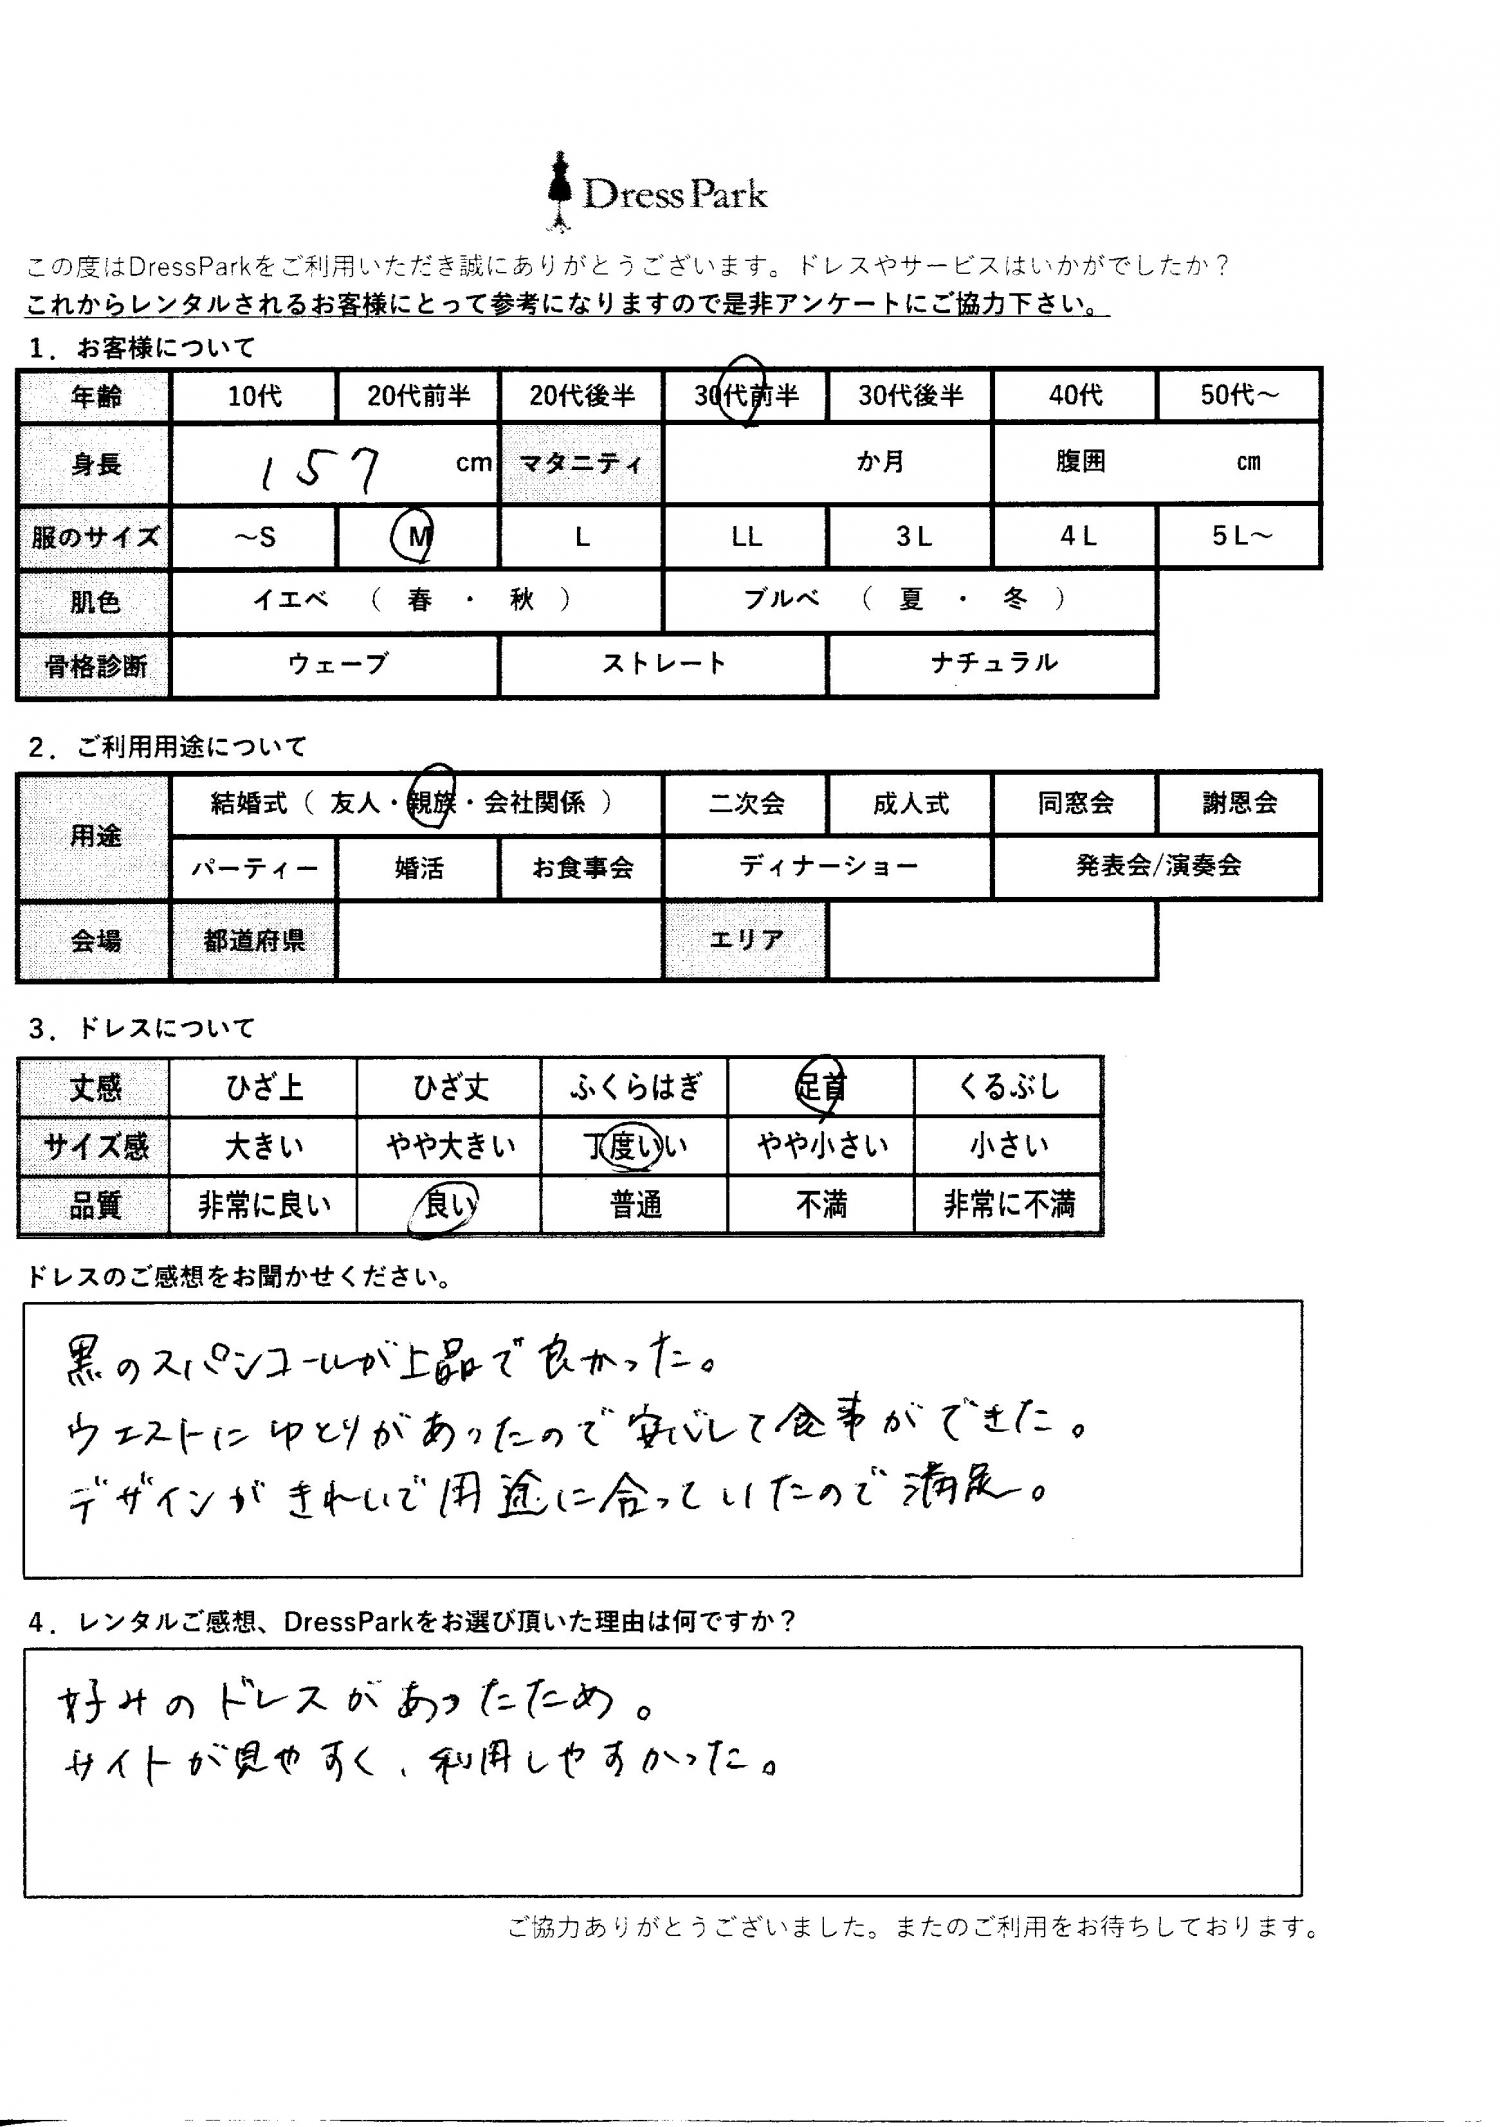 Dress Park
この度はDressParkをご利用いただき誠にありがとうございます。ドレスやサービスはいかがでしたか？
これからレンタルされるお客様にとって参考になりますので是非アンケートにご協力下さい。
1．お客様について
年齢 10代 20代前半 20代後半 30代前半 30代後半 40代 50代～
身長 157 cm マタニティ か月 腹囲 ㎝
服のサイズ ～S M L LL 3L 4L 5L～
肌色 イエベ （ 春 ・ 秋 ） ブルベ （ 夏 ・ 冬 ）
骨格診断 ウェーブ ストレート ナチュラル
2．ご利用用途について
用途 結婚式（ 友人・親族・会社関係 ） 二次会 成人式 同窓会 謝恩会
パーティー 婚活 お食事会 ディナーショー 発表会/演奏会
会場 都道府県 エリア
3．ドレスについて
丈感 ひざ上 ひざ丈 ふくらはぎ 足首 くるぶし
サイズ感 大きい やや大きい 丁度いい やや小さい 小さい
品質 非常に良い 良い 普通 不満 非常に不満
ドレスのご感想をお聞かせください。
黒のスパンコールが上品で良かった。
ウエストにゆとりがあったので安心して食事ができた。
デザインがきれいで用途に合っていたので満足。
4．レンタルご感想、DressParkをお選び頂いた理由は何ですか？
好みのドレスがあったため。
サイトが見やすく、利用しやすかった。
ご協力ありがとうございました。またのご利用をお待ちしております。